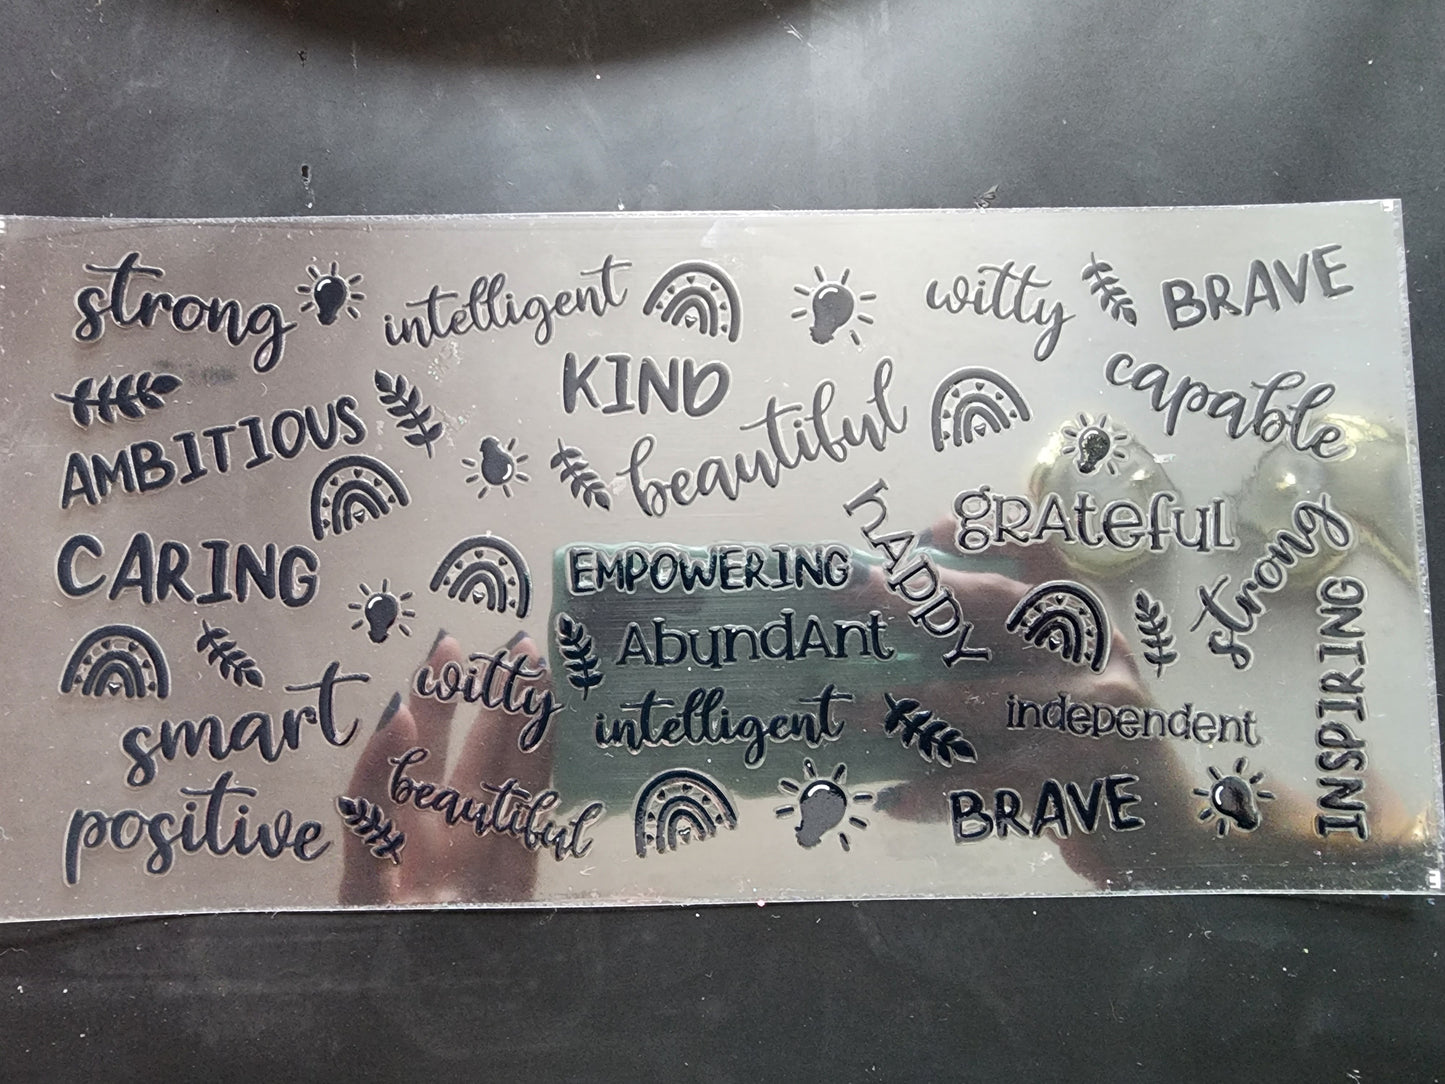 strong
intelligent
witty
BRAVE
KIND
capable
AMBITIOUS
beautiful
grateful
happy
strong
CARING
EMPOWERING
AbundAnt
INSPIRING
witty
smart
intelligent
independent
beautiful
positive
BRAVE